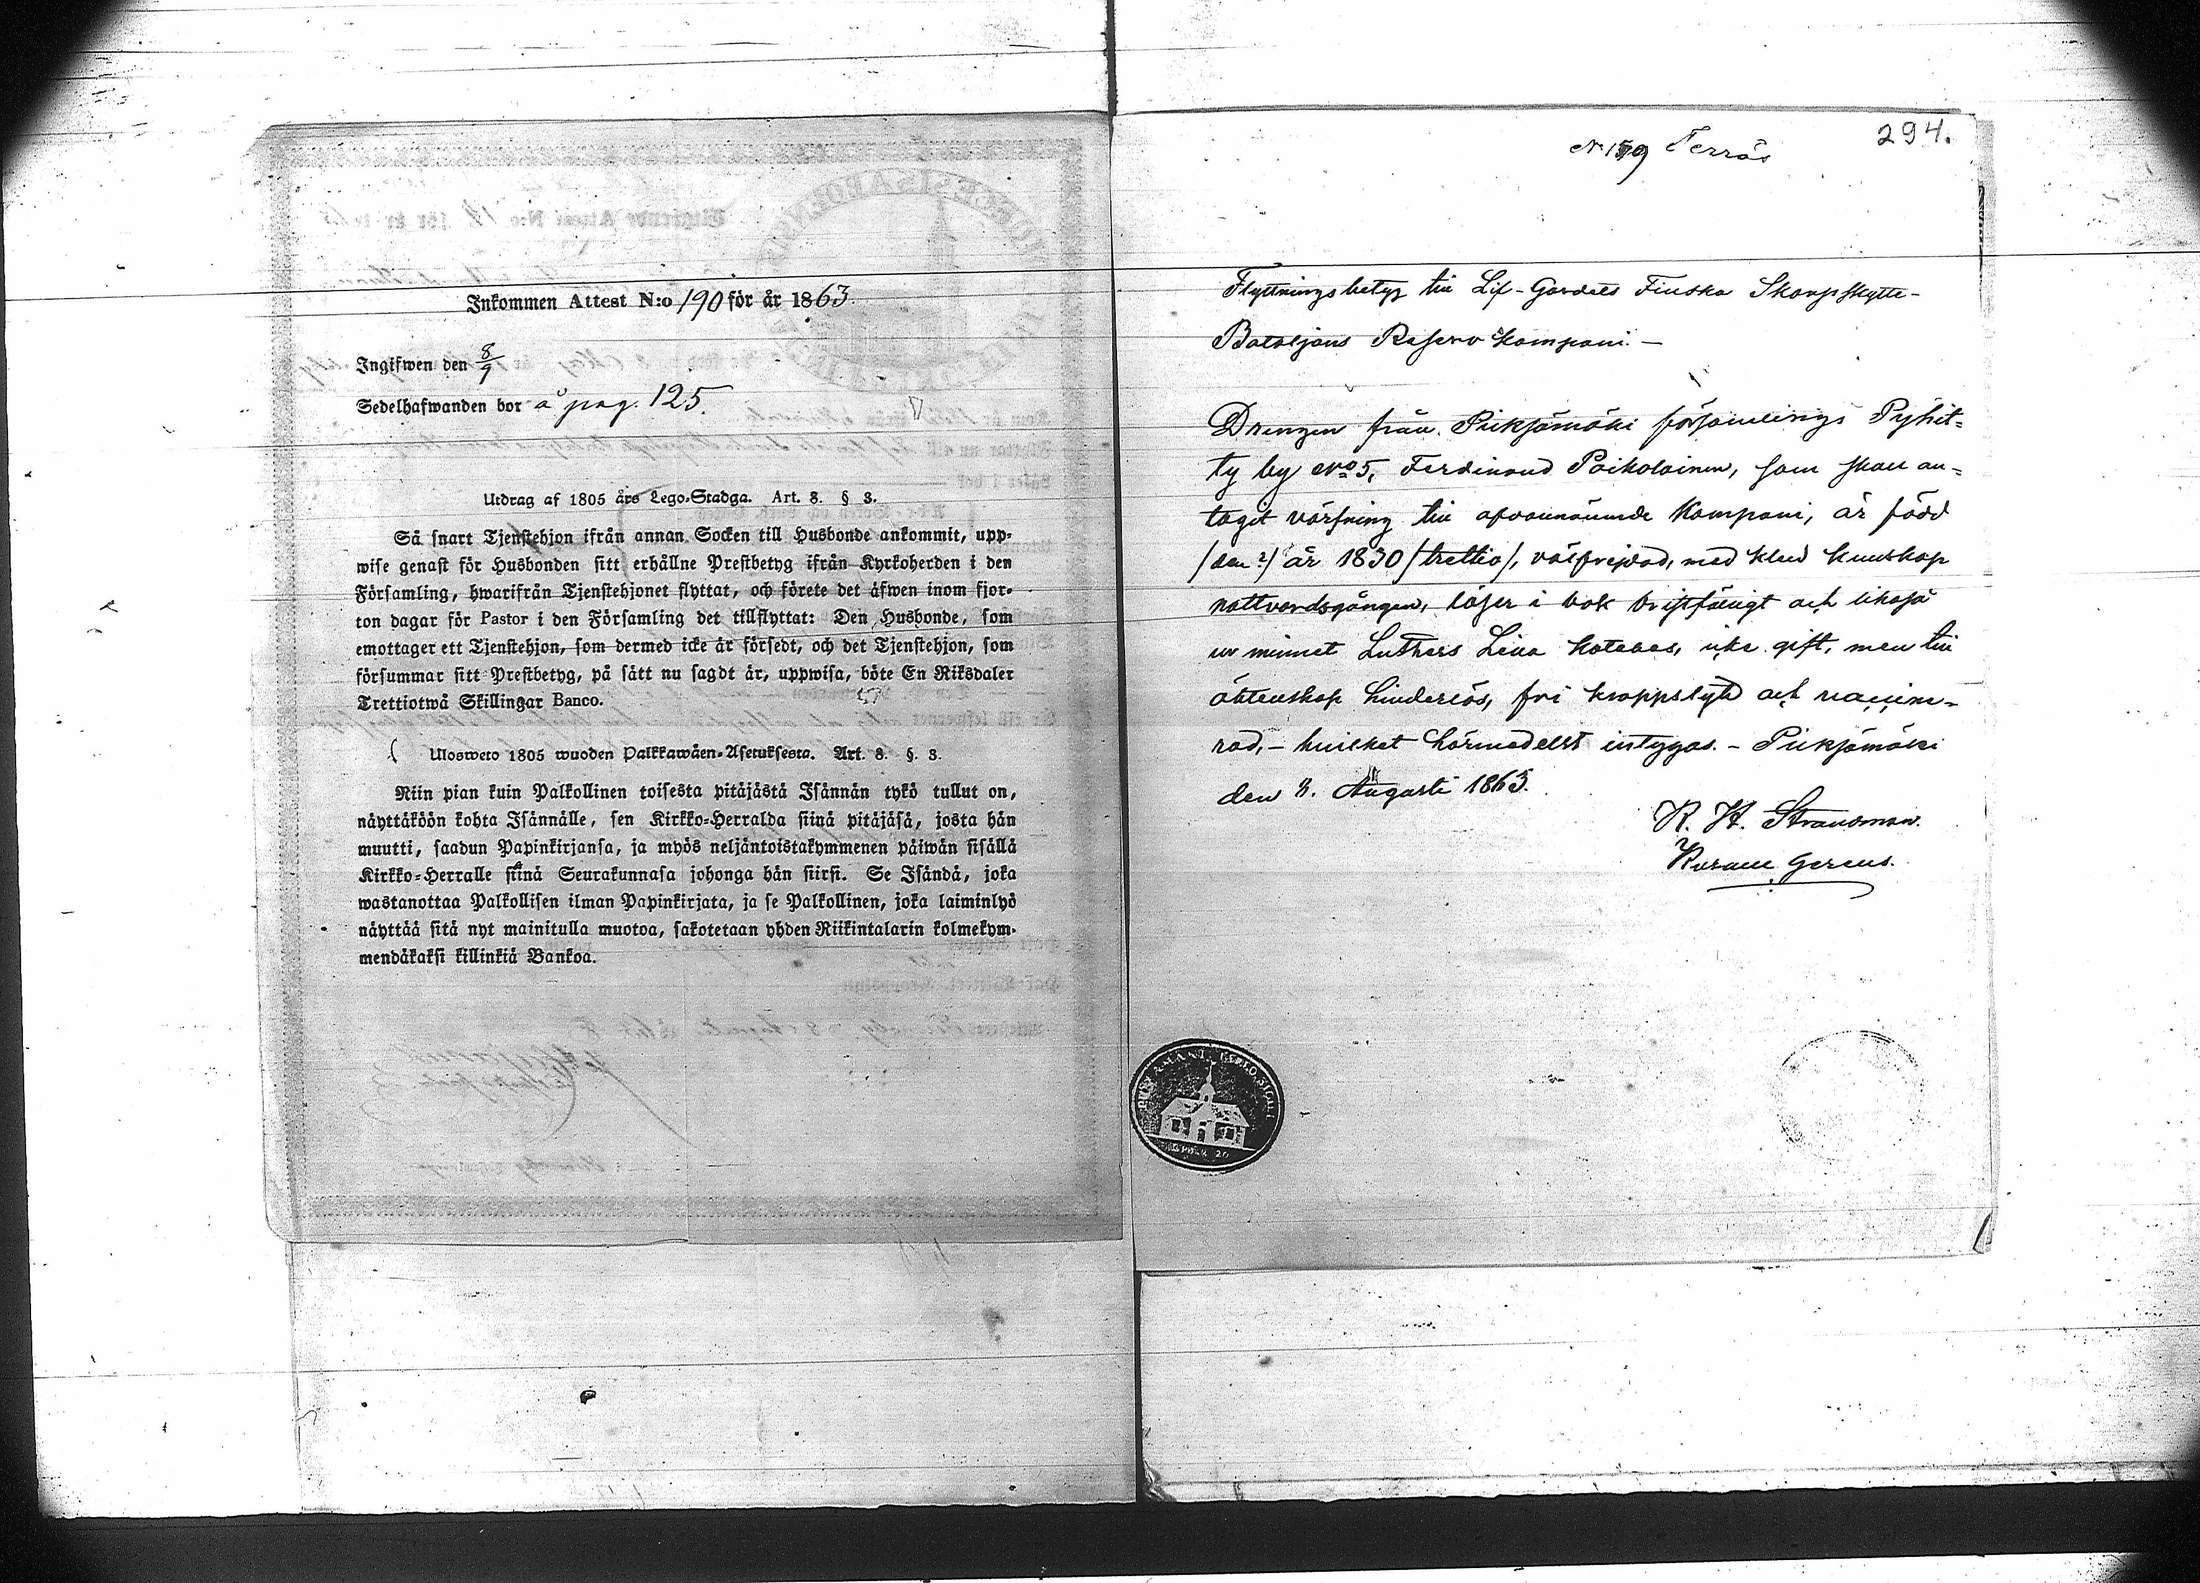 Inkommen Attest N:o 190 för år 1863
Ingifwen den 8/9
Sedelhafwanden bor å pag. 125.
Utdrag af 1805 års Lego-Stadga. Art. 8. § 3.
Så snart Tjenstehjon ifrån annan Socken till Husbonde ankommit, upp-
wise genast för Husbonden sitt erhållne Prestbetyg ifrån Kyrkoherden i den
Församling, hwarifrån Tjenstehjonet flyttat, och förete det äfwen inom fjor-
ton dagar för Pastor i den Församling det tillflyttat: Den Husbonde, som
emottager ett Tjenstehjon, som dermed icke är försedt, och det Tjenstehjon, som
försummar sitt Prestbetyg, på sätt nu sagdt är, uppwisa, böte En Riksdaler
Trettiotwå Skillingar Banco.
Ulosweto 1805 wuoden Palkkawäen-Asetuksesta. Art. 8. §. 3.
Niin pian kuin Palkollinen toisesta pitäjästä Isännän tykö tullut on,
näyttäköön kohta Isännälle, sen Kirkko-Herralda siinä pitäjäsä, josta hän
muutti, saadun Papinkirjansa, ja myös neljäntoistakymmenen päiwän sisällä
Kirkko-Herralle siinä Seurakunnasa johonga hän siirsi. Se Isändä, joka
wastanottaa Palkollisen ilman Papinkirjata, ja se Palkollinen, joka laiminlyö
näyttää sitä nyt mainitulla muotoa, sakotetaan yhden Riikintalarin kolmekym-
mendäkaksi killinkiä Bankoa.
294.
Flyttningsbetyg till Lif-Gardets Finska Skarpskytte-
Bataljons Reserv Kompani. —
Drengen från Pieksämäki församlings Pyhit-
ty by No 5, Ferdinand Paikolainen, som skall an-
tagit värfning till ofvannämnde Kompani, är född
/den ?/ år 1830 /trettio/, välfrejdad, med klen kunskap
nattvardsgången, läser i bok bristfälligt och likaså
ur minnet Luthers Lilla Kateces, icke gift, men till
äktenskap hinderlös, fri kroppslyte och vaccine-
rad, – hvilket härmedelst intygas. – Pieksämäki
den 3. Augusti 1863.
K. H. Strandman.